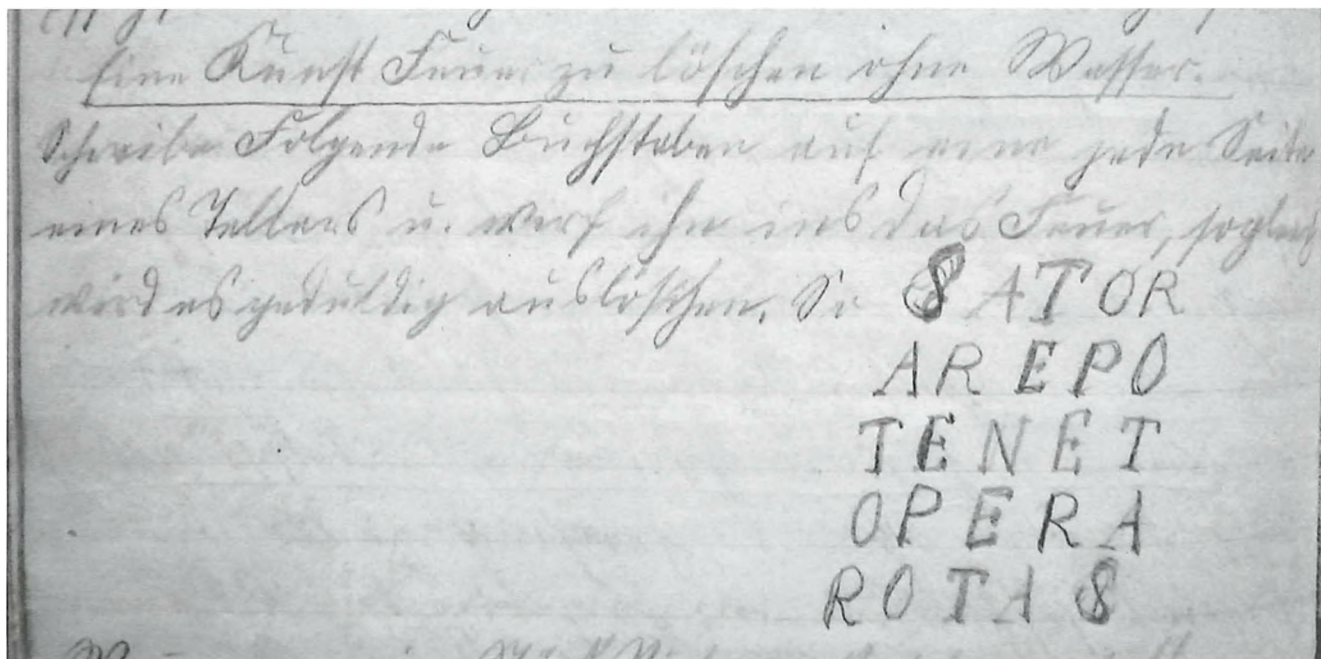 Eine Kunst Feuer zu löschen ohne Wasser.
Schreibe Folgende Buchstaben auf eine jede Seite
eines Tellers u. werf ihn ins das Feuer, sogleich
wird es geduldig auslöschen. So SATOR
AREPO
TENET
OPERA
ROTAS